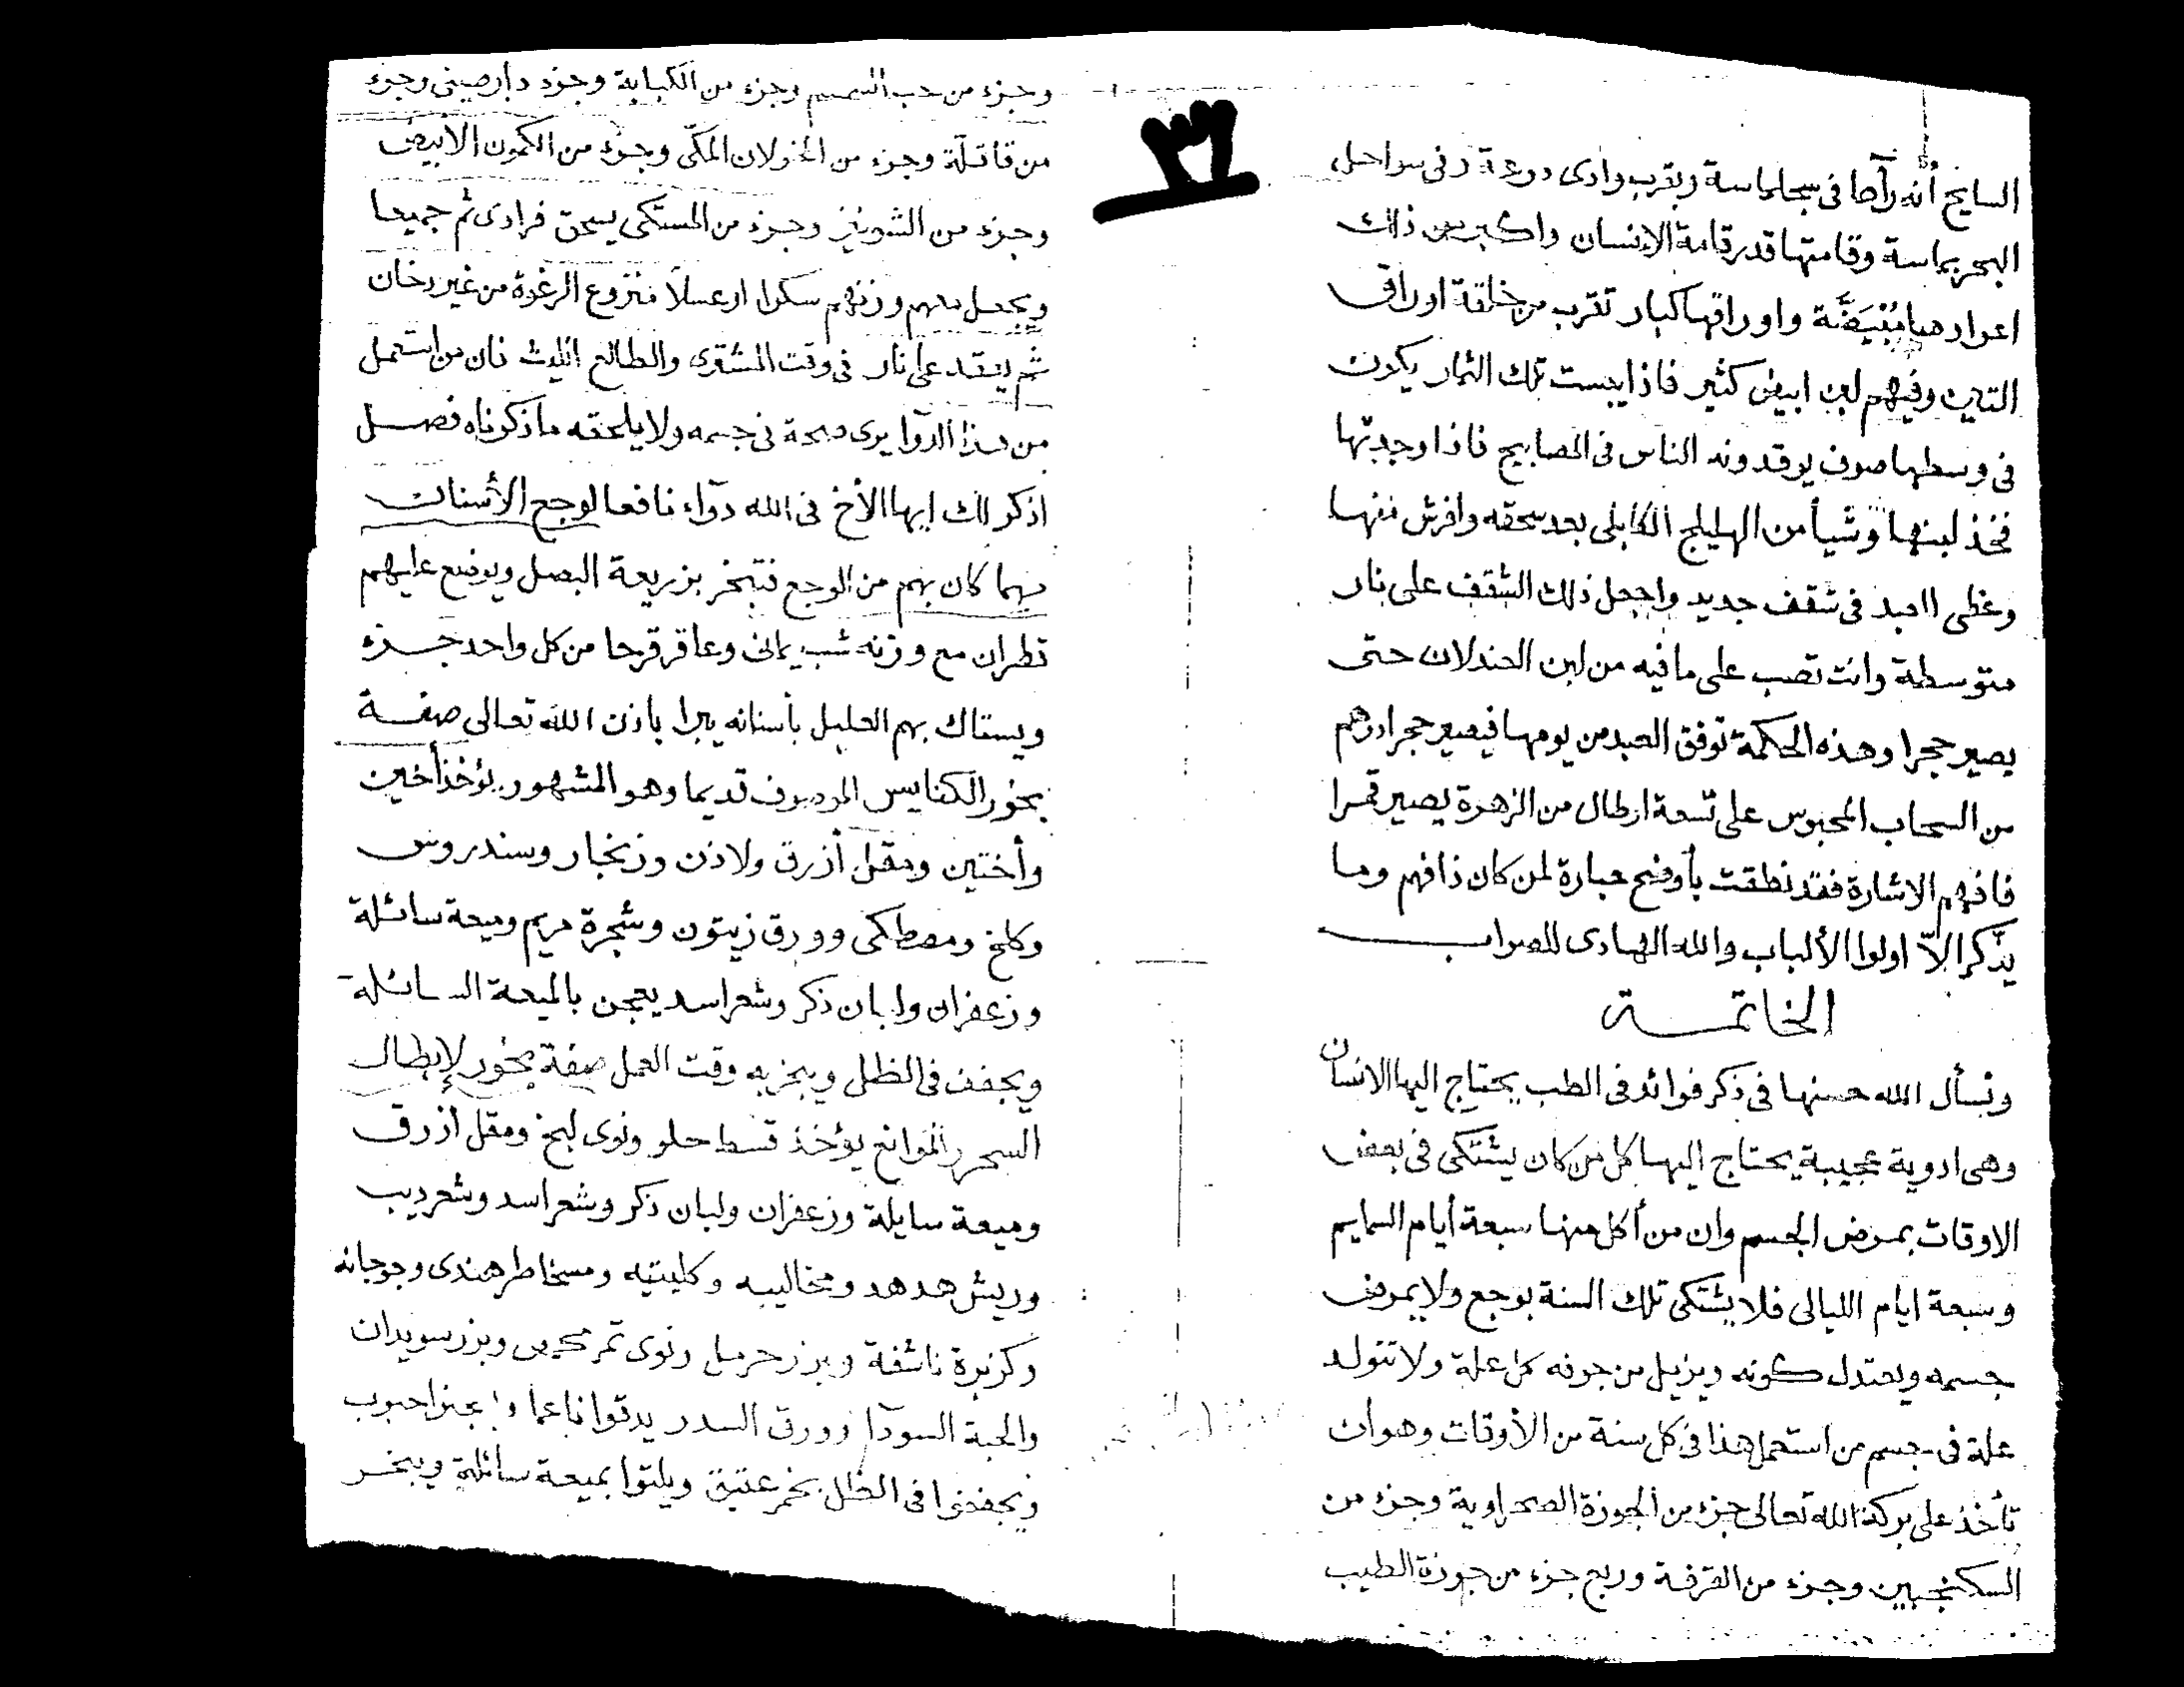 السايح أنه رآها فى سجلماسة وبقرب وادى درعة وفى سواحل
البحر بماسة وقامتها قدر قامة الإنسان واكبر من ذلك
اعوادها مُبْيَضَّة واوراقها كبار تقرب من خلقة اوراق
التين وفيهم لبن ابيض كثير فاذا يبست تلك الثمار يكون
فى وسطها صوف يوقدونه الناس فى المصابيح فاذا وجدتها
فخذ لبنها وشيأ من الهليلج الكابلى بعد سحقه وافرش منها
وغطى العبد فى شقف جديد واجعل ذلك الشقف على نار
متوسطة وانت تصب على ما فيه من لبن الحندلان حتى
يصير حجرا وهذه الحكمة توفق العبد من يومها فيصير حجرا درهم
من السحاب المحبوس على تسعة ارطال من الزهرة يصير قمرا
فافهم الاشارة فقد نطقت بأوضح عبارة لمن كان ذا فهم وما
يذّكر إلاّ اولوا الألباب والله الهادى للصواب
الخاتمة
ونسأل الله حسنها فى ذكر فوائد فى الطب يحتاج اليها الانسان
وهى ادوية عجيبة يحتاج اليها كل من كان يشتكى فى بعض
الاوقات بمرض الجسم وان من أكل منها سبعة أيام السمايم
وسبعة ايام الليالى فلا يشتكى تلك السنة بوجع ولا يمرض
جسمه ويعتدل كونه ويزيل من جوفه كل علة ولا تتولد
علة فى جسم من استعمل هذا فى كل سنة من الأوقات وهو ان
تأخذ على بركة الله تعالى جزء من الجوزة الصحراوية وجزء من
السكنجبين وجزء من القرفة وربع جزء من جوزة الطيب
٣٦
وجزء من حب السمسم وجزء من الكبابة وجزء دارصينى وجزء
من قاقلة وجزء من الخولان المكّى وجزء من الكمون الأبيض
وجزء من الشونيز وجزء من المستكى يسحق فرادى ثم جميعا
ويجعل معهم وزنهم سكرا او عسلاً منزوع الرغوة من غير دخان
ثم يعقد على نار فى وقت المشترى والطالع الليث فان من استعمل
من هذا الدوا يرى صحة فى جسمه ولا يلحقه ما ذكرناه فصل
اذكر لك ايها الأخ فى الله دوآء نافعا لوجع الأسنان
مهما كان بهم من الوجع فتبخر بزريعة البصل ويوضع عليهم
قطران مع وزنه شب يمانى وعاقرقرحا من كل واحد جزء
ويستاك بهم العليل بأسنانه يبرا باذن الله تعالى صفة
بخور الكنايس الموصوف قديما وهو المشهور يؤخذ أخين
وأختين ومقل أزرق ولاذن وزنجار وسندروس
وكلخ ومصطكى وورق زيتون وشجرة مريم وميعة سائلة
وزعفران ولبان ذكر وشعر اسد يعجن بالميعة السائلة
ويجفف فى الظل ويبخر به وقت العمل صفة بخور لإبطال
السحر والموانع يؤخذ قسط حلو ونوى لبخ ومقل ازرق
وميعة سايلة وزعفران ولبان ذكر وشعر اسد وشعر ديب
وريش هدهد ومخاليبه وكليتيه ومسخاطر هندى وجوجانه
وكزبرة ناشفة وبزر حرمل ونوى تمر وبزر سويدان
والحبة السودآ وورق السدر يدقوا ناعما واعجنوا حبوب
ويجففوا فى الظل بخمر عتيق ويلتوا بميعة سائلة ويبخر